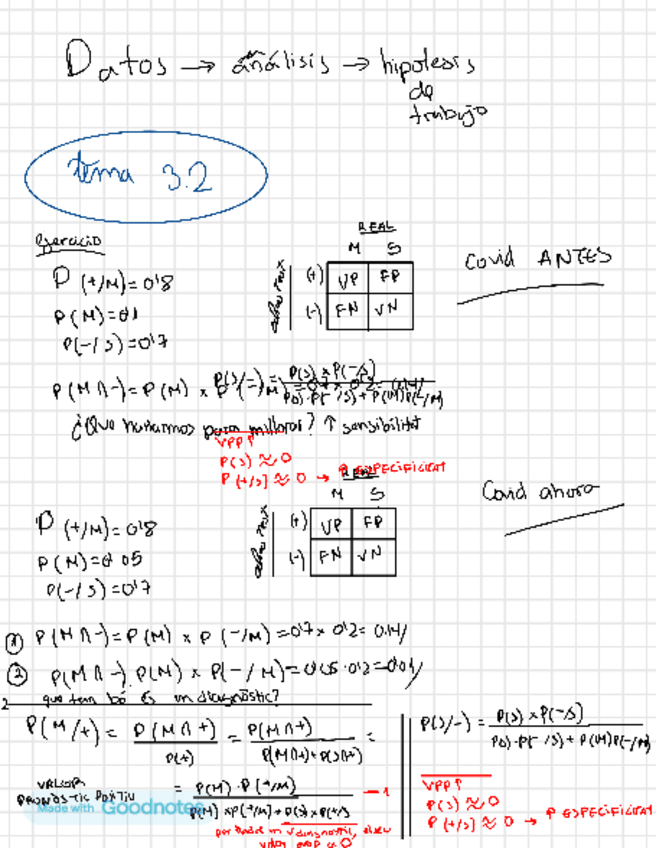 Datos → análisis → hipotesis
de
trabajo
tema 3.2
Ejercicio
P(+/M)=0'8
P(M)=0'1
P(-/S)=0'7
REAL
M S
(+) VP FP
(-) FN VN
Covid ANTES
P(M∩-)=P(M) x
P(S/-) = P(S) x P(-/S)
para millorar? ↑ sensibilitat
VPP↑
P(S) ≈ 0
P(+/S) ≈ 0 → ↑ ESPECIFICITAT
REAL
M S
(+) VP FP
(-) FN VN
Covid ahora
P(+/M)=0'8
P(M)=0'05
P(-/S)=0'7
① P(M∩-)=P(M) x P(-/M)=0'7x 0'2= 0.14/
② P(M∩-) P(M) x P(-/M)=0'05·0'2=0'01/
2 que tan bó és un diagnòstic?
P(M/+) = P(M∩+) / P(+) = P(M∩+) / P(M∩+)+P(S∩+) =
VALOR PRONÒSTIC POSITIU
= P(M)·P(+/M) / P(M)xP(+/M)+P(S)xP(+/S) → 1
P(S/-) = P(S) x P(-/S) / P(S)·P(-/S)+P(M)P(-/M)
VPP↑
P(S) ≈ 0
P(+/S) ≈ 0 → ↑ ESPECIFICITAT
Made with Goodnotes